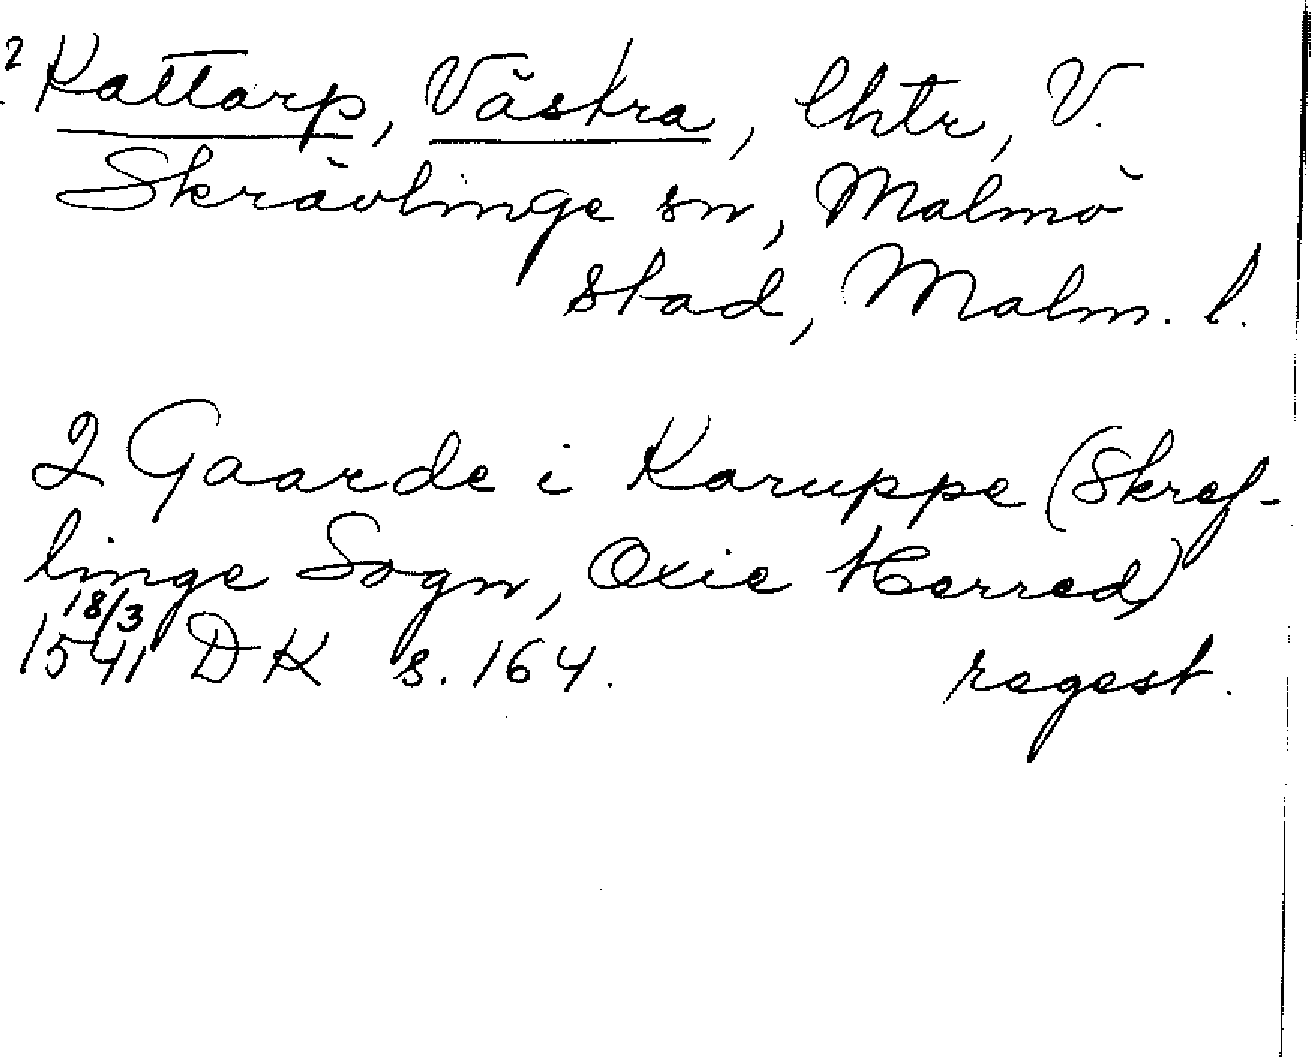 ? Kattarp, Västra, lhtr, V.
Skrävlinge sn, Malmö
stad, Malm. l.
2 Gaarde i Karuppe (Skref-
linge Sogn, Oxie Herred)
18/3
1541 DK s. 164. regest.